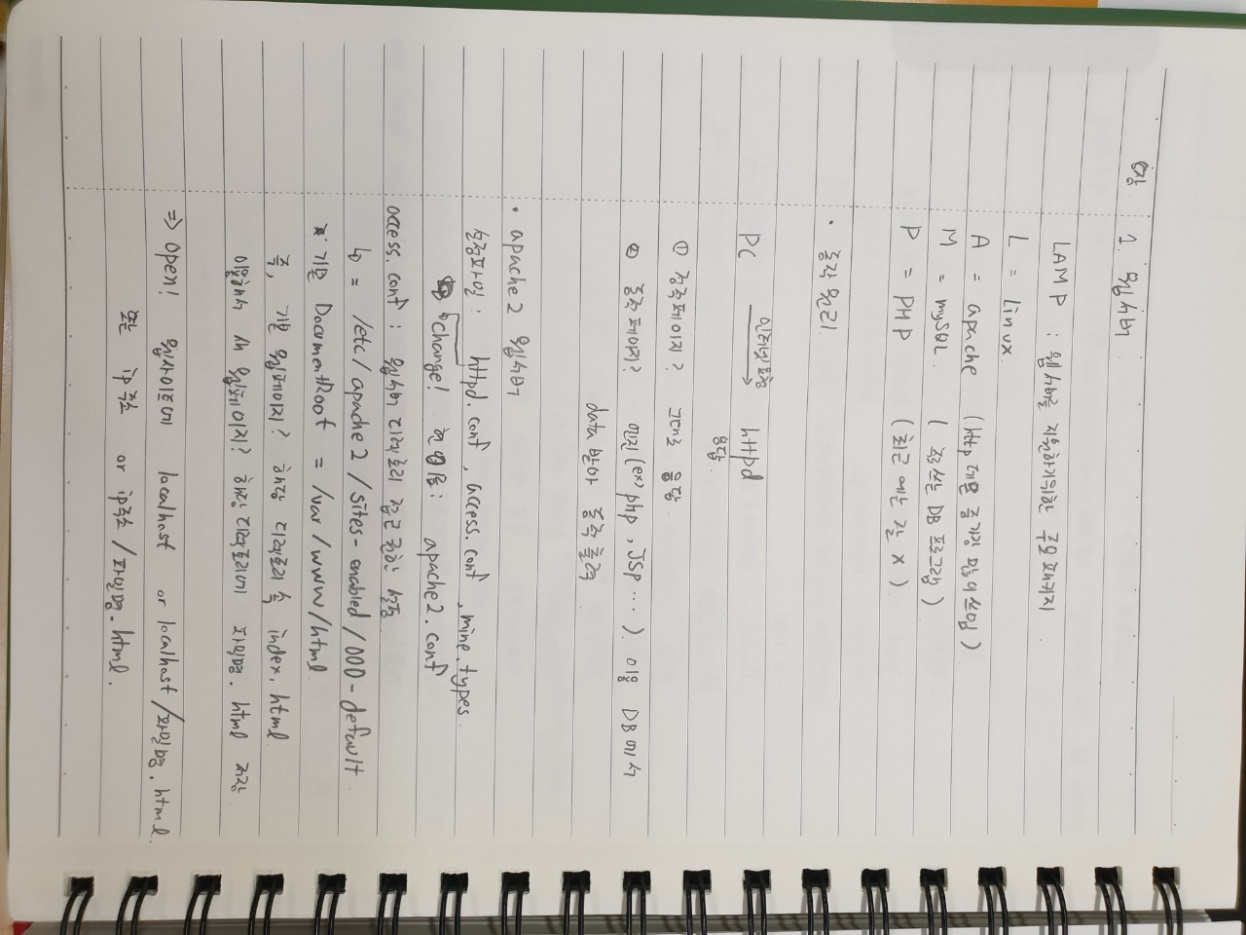 웹
1. 웹서버
LAMP : 웹서버를 지원하기위한 주요패키지
L = Linux
A = apache (http 데몬 중 가장 많이 쓰임)
M = mySQL ( 잘쓰는 DB 프로그램 )
P = PHP ( 최근에는 잘 X )
• 동작 원리
PC 인터넷 접속 httpd
응답
① 정적페이지? 그대로 응답
② 동적페이지? 엔진 (ex) php, JSP ... ) 이용 DB에서
data 받아 동적 출력
• apache 2 웹서버
설정파일 : httpd.conf , access.conf , mine.types
change! 현 이름 : apache2.conf
access.conf : 웹서버 디렉토리 접근 권한 설정
↳ = /etc/apache2/sites-enabled/000-default
※ 기본 DocumentRoot = /var/www/html
즉, 기본 웹페이지? 해당 디렉토리 속 index.html
이용해서 새 웹페이지? 해당 디렉토리에 파일명.html 저장
⇒ Open! 웹사이트에 localhost or localhost/파일명.html
또는 ip주소 or ip주소/파일명.html.